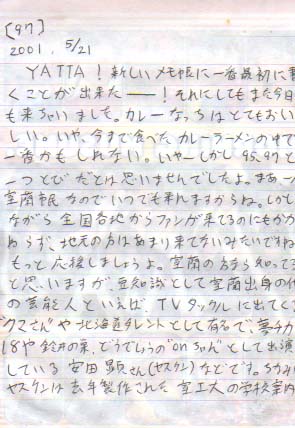 [97]
2001. 5/21
YATTA! 新しいメモ帳に一番最初に書
くことが出来たーー! それにしてもまた今日
も来ちゃいました。カレーなっちはとてもおい
しい。いや、今まで食べたカレーラーメンの中で
一番かもしれない。いやーしかし95,97と
一つとびだとは思いませんでしたよ。まあ一
室蘭民なのでいつでも来れますからね。しかし
ながら全国各地からファンが来てるのにもかか
わらず、地元の方はあまり来てないみたいですね
もっと応援しましょうよ。室蘭の方なら知って
と思いますが、豆知識として室蘭出身の
の芸能人といえば、TVタックルに出てく
クマさんや北海道タレントとして有名で、夢チカ
18や鈴井の巣、どうでしょうの"onちゃん"として出演
している 安田顕さん(ヤスケン)などです。ちなみに
ヤスケンは去年製作された室工大の学校案内